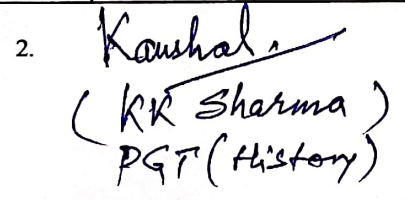 2. Kaushal.
(KK Sharma)
PGT (History)